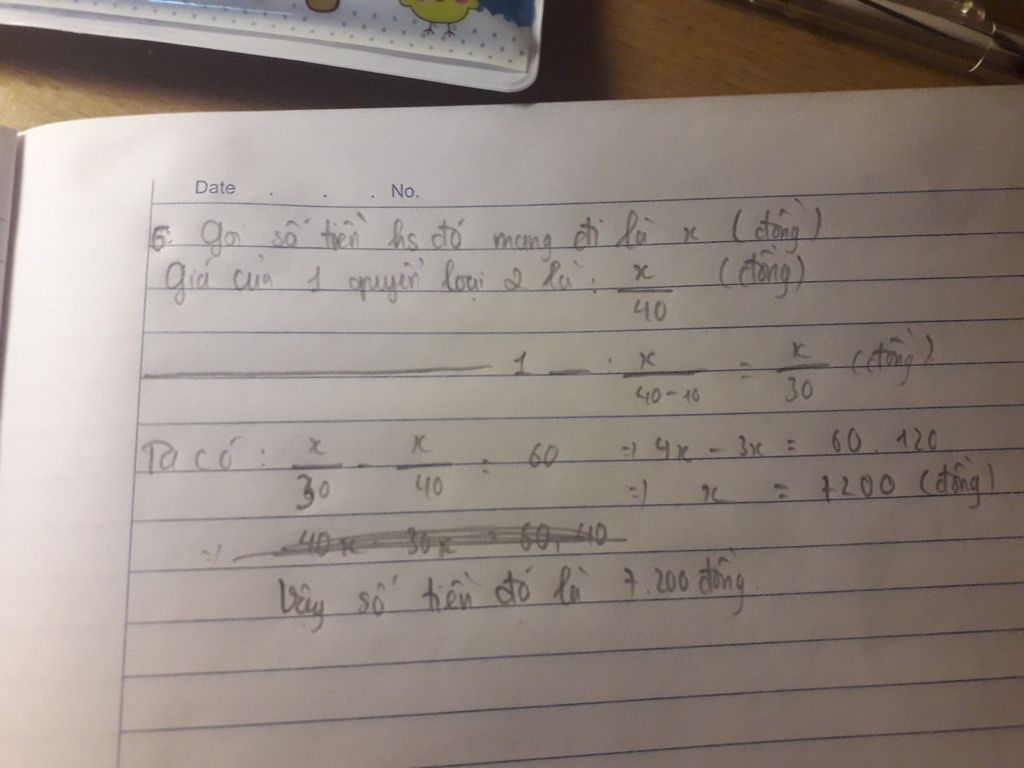 Date . . . No.
5. Gọi số tiền hs đó mang đi là x (đồng)
Giá của 1 quyển loại 2 là : x/40 (đồng)
——— 1 — : x/(40-10) = x/30 (đồng)
Ta có : x/30 - x/40 = 60 => 4x - 3x = 60 . 120
=> x = 7200 (đồng)
=> 40x - 30x = 60. 40
Vậy số tiền đó là 7.200 đồng.